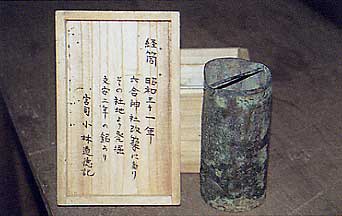 経筒 昭和三十一年
六合神社改築に当り
その社地より発掘
文安二年の銘あり
宮司 小林